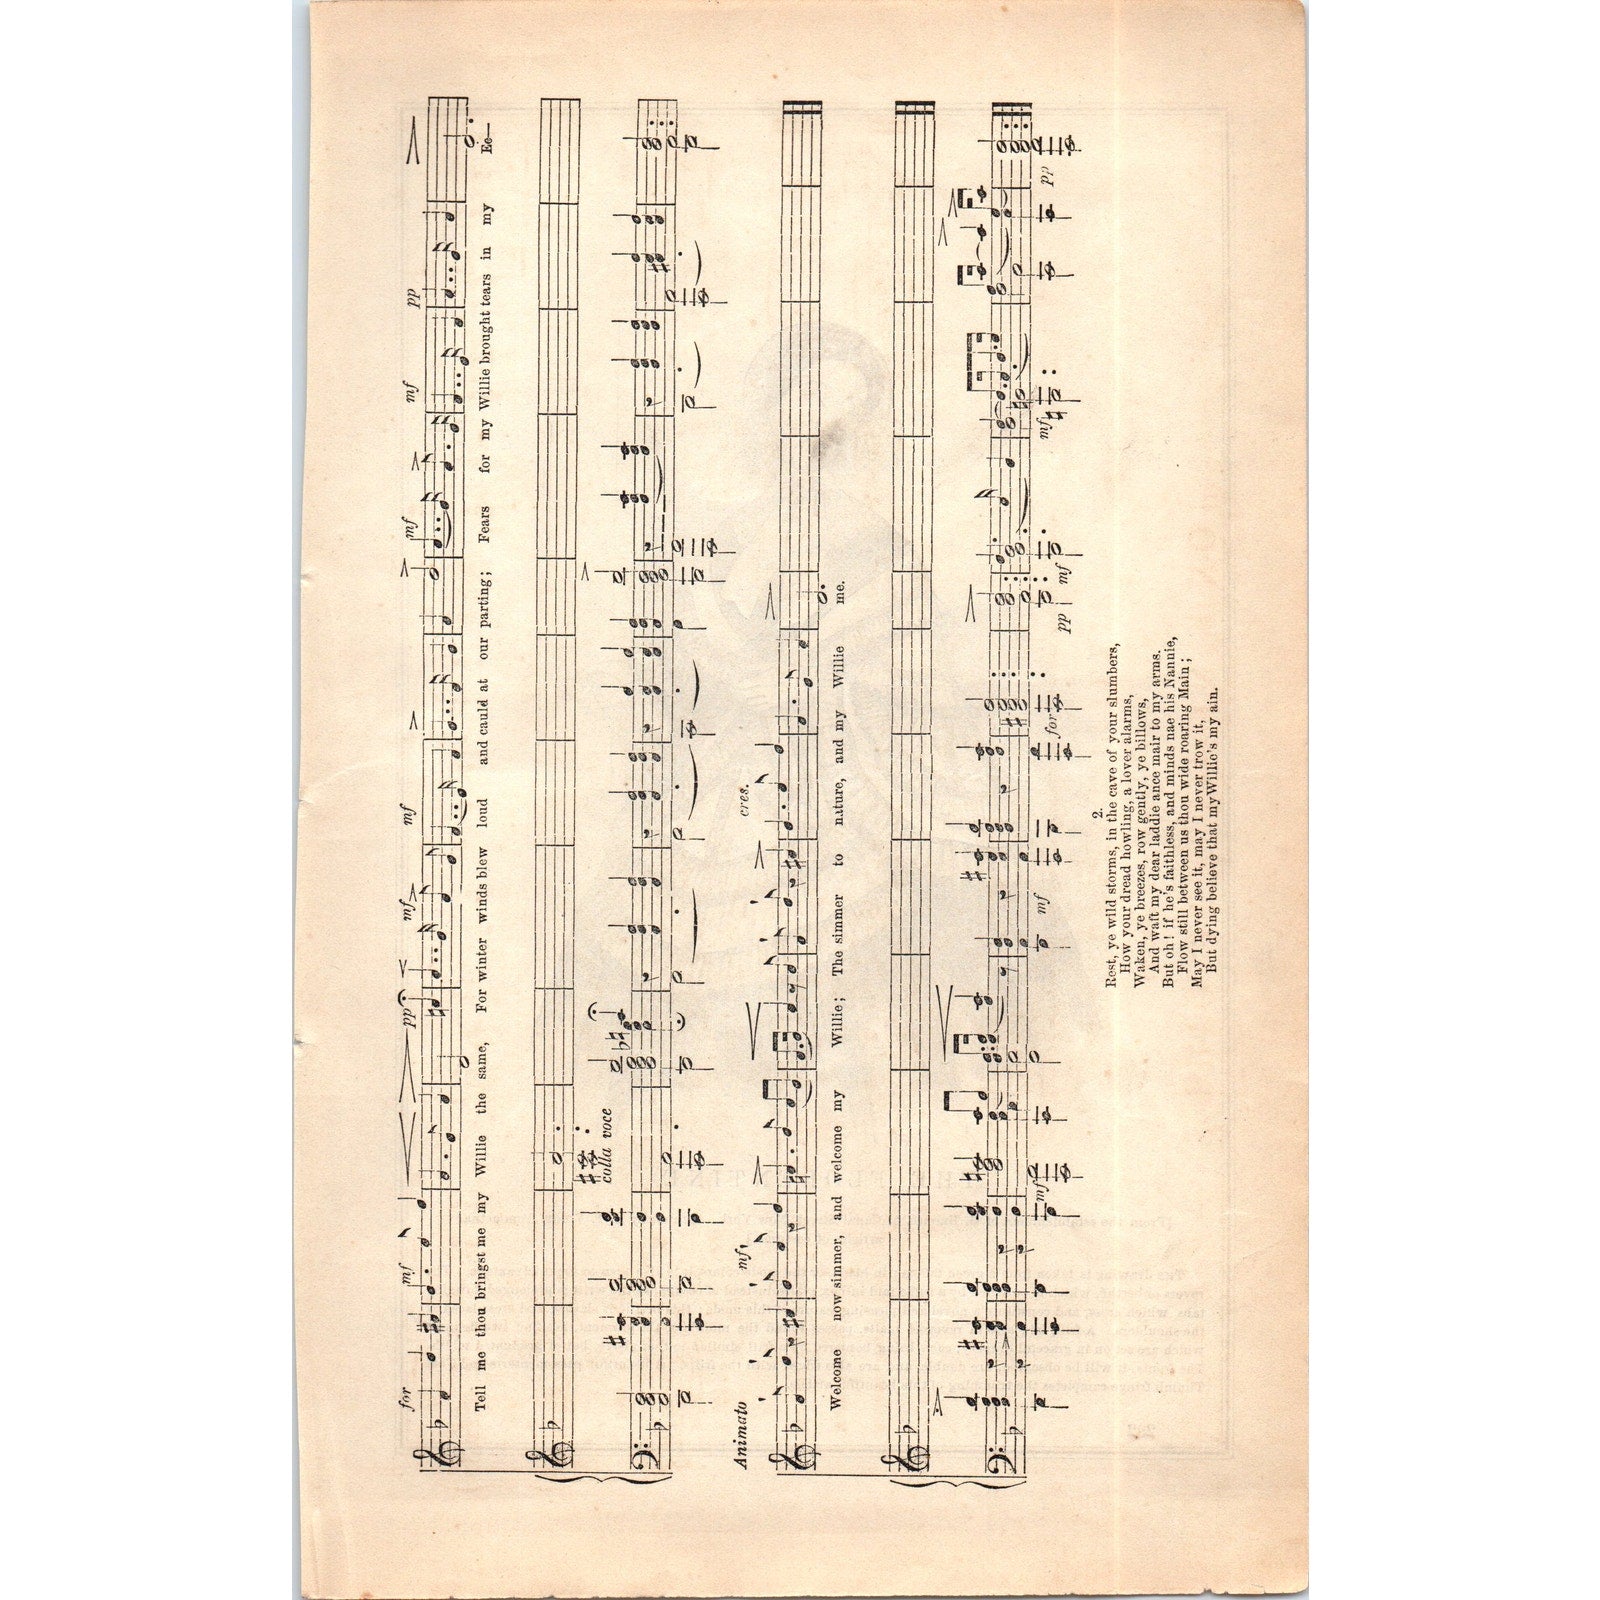 for mf pp mf mf pp mf mf pp
Tell me thou bringst me my Willie the same, For winter winds blew loud and cauld at our parting; Fears for my Willie brought tears in my Ee—
colla voce
Animato mf, cres.
Welcome now simmer, and welcome my Willie; The simmer to nature, and my Willie me.
mf mf for pp mf mf pp
2.
Rest, ye wild storms, in the cave of your slumbers,
How your dread howling, a lover alarms,
Waken, ye breezes, row gently, ye billows,
And waft my dear laddie ance mair to my arms.
But oh! if he's faithless, and minds nae his Nannie,
Flow still between us thou wide roaring Main;
May I never see it, may I never trow it,
But dying believe that my Willie's my ain.